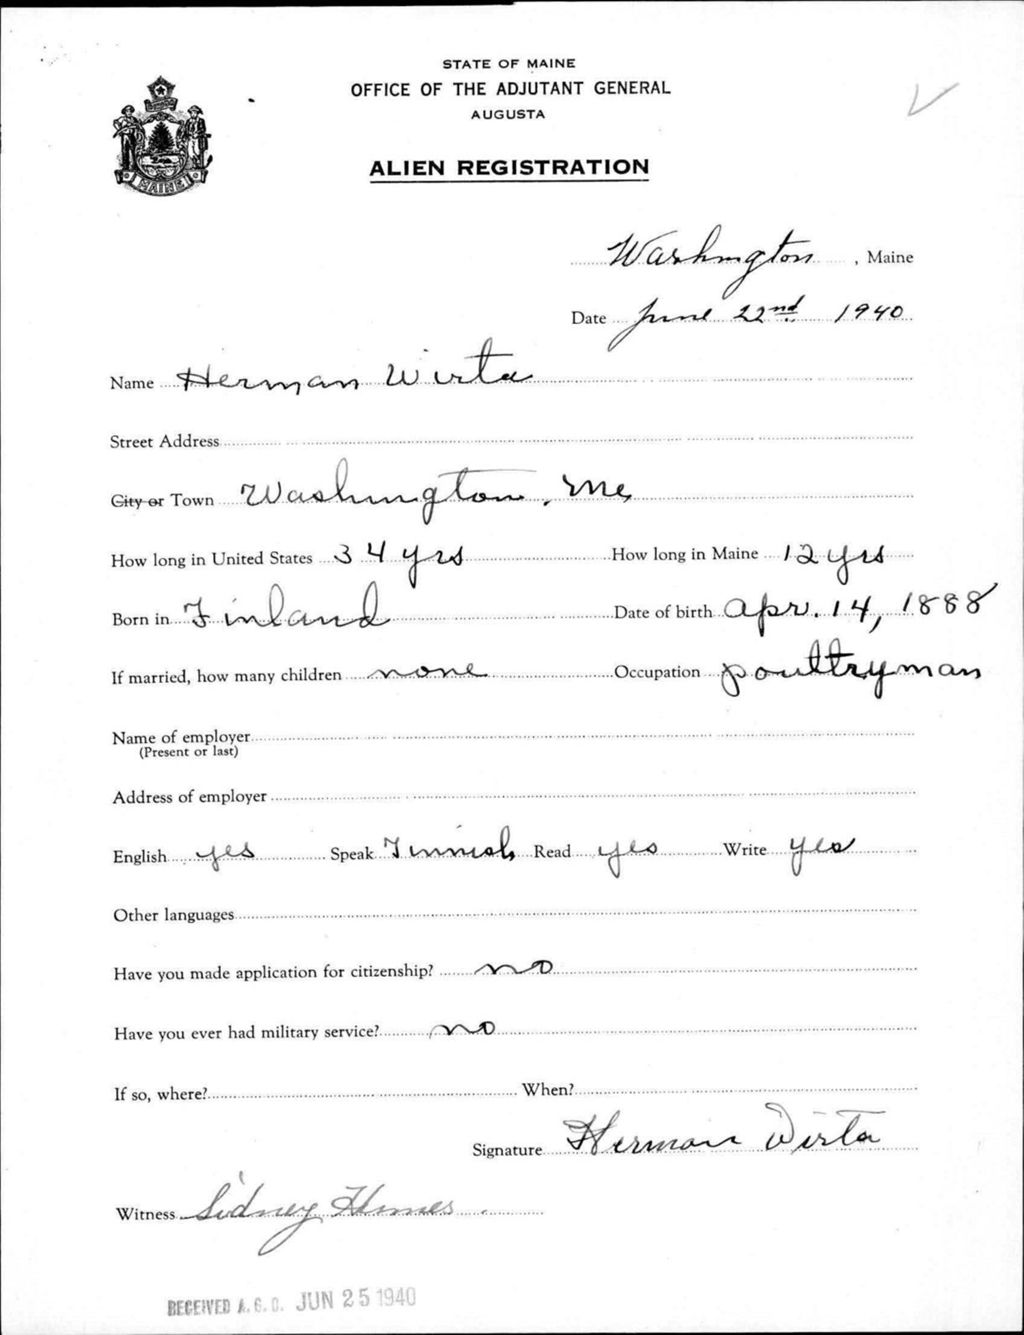 STATE OF MAINE
OFFICE OF THE ADJUTANT GENERAL
AUGUSTA
ALIEN REGISTRATION
MAINE
Washington, Maine
Date June 22nd. 1940
Name Herman Wirta
Street Address
City or Town Washington, Me,
How long in United States 34 yrs How long in Maine 12 yrs
Born in Finland Date of birth Apr. 14, 1888
If married, how many children none Occupation poultryman
Name of employer
(Present or last)
Address of employer
English yes Speak Finnish Read yes Write yes
Other languages
Have you made application for citizenship? no
Have you ever had military service? no
If so, where? When?
Signature Herman Wirta
Witness Sidney
RECEIVED A. G. O. JUN 25 1940